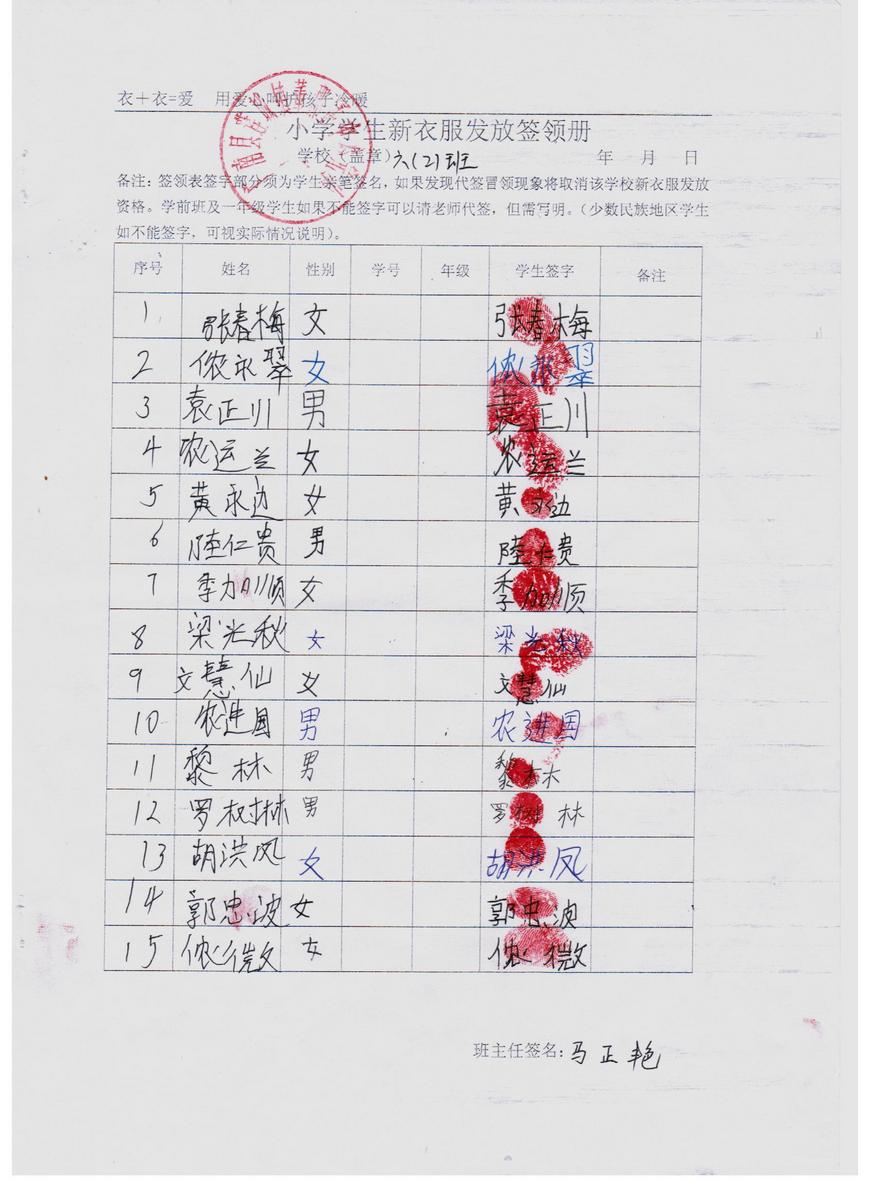 衣+衣=爱 用爱心呵护孩子冷暖
小学学生新衣服发放签领册
学校(盖章)六(2)班 年 月 日
备注:签领表签字部分须为学生亲笔签名,如果发现代签冒领现象将取消该学校新衣服发放
资格。学前班及一年级学生如果不能签字可以请老师代签,但需写明。(少数民族地区学生
如不能签字,可视实际情况说明)。
序号 姓名 性别 学号 年级 学生签字 备注
1 张春梅 女 张春梅
2 侬永翠 女 侬永翠
3 袁正川 男 袁正川
4 农运兰 女 农运兰
5 黄永边 女 黄永边
6 陆仁贵 男 陆仁贵
7 季加顺 女 季加顺
8 梁光秋 女 梁光秋
9 文慧仙 女 文慧仙
10 农进国 男 农进国
11 黎林 男 黎林
12 罗树林 男 罗树林
13 胡洪凤 女 胡洪凤
14 郭忠波 女 郭忠波
15 侬微 女 侬微
班主任签名:马正艳